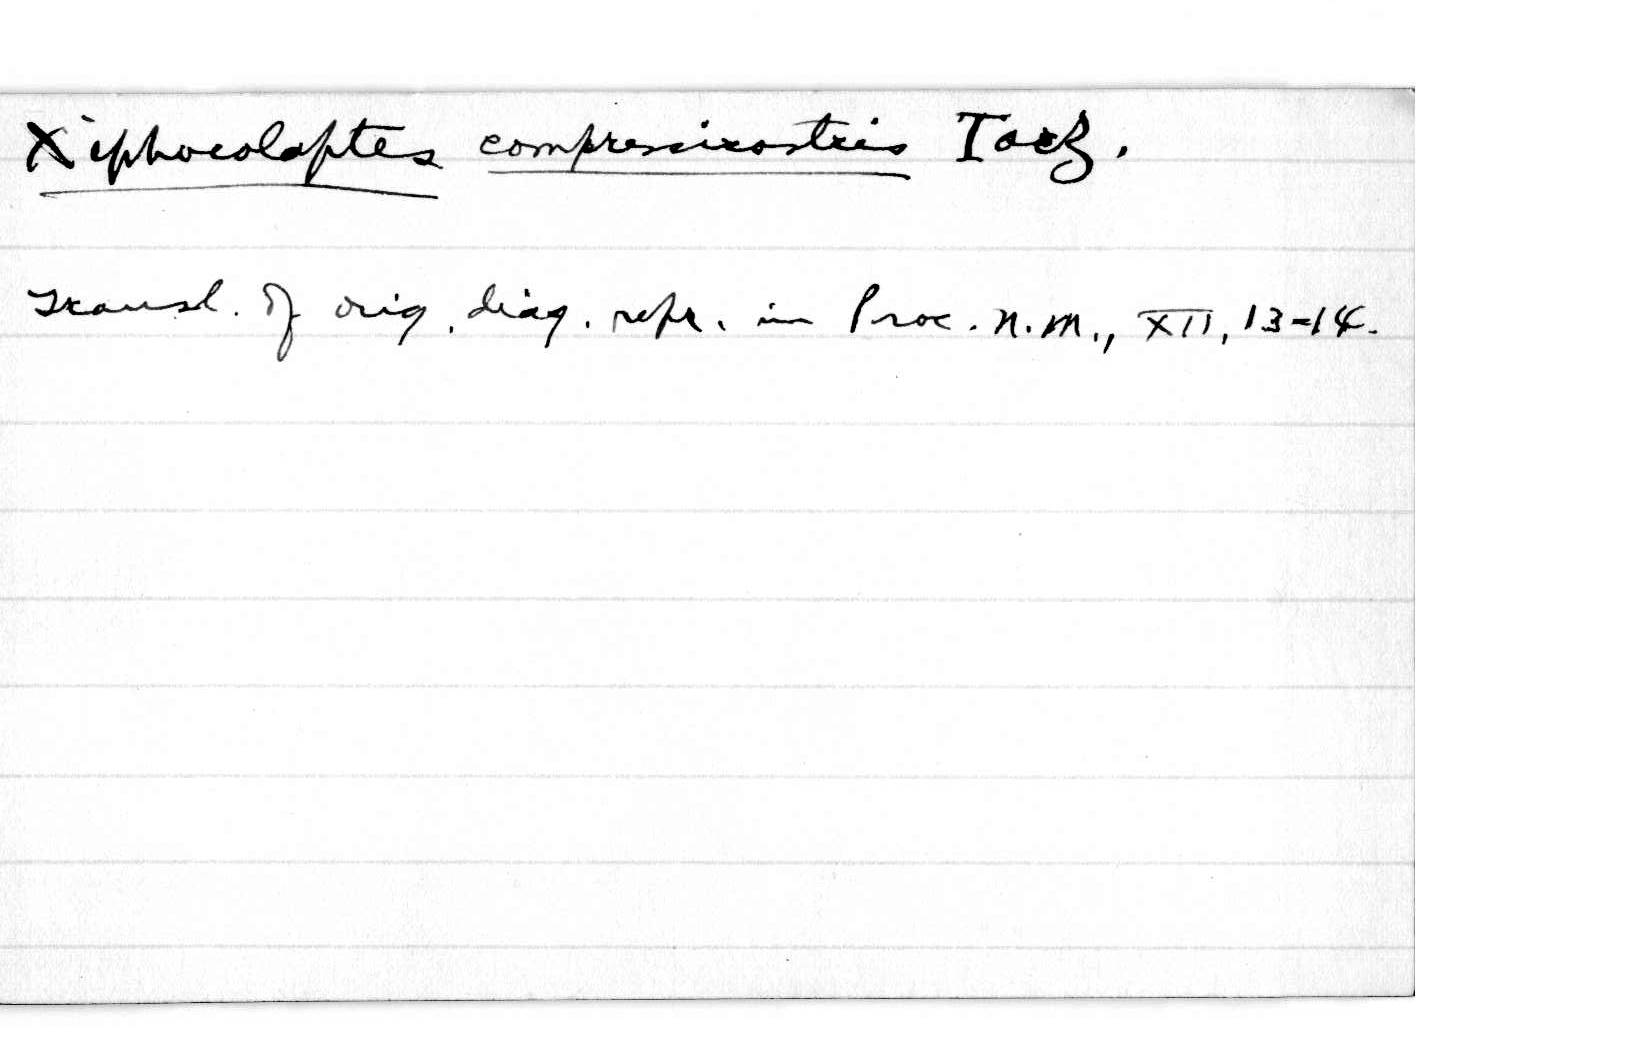 Xiphocolaptes compressirostris Tacz.
Transl. of orig. diag. repr. in Proc. N.M., XII, 13-14.